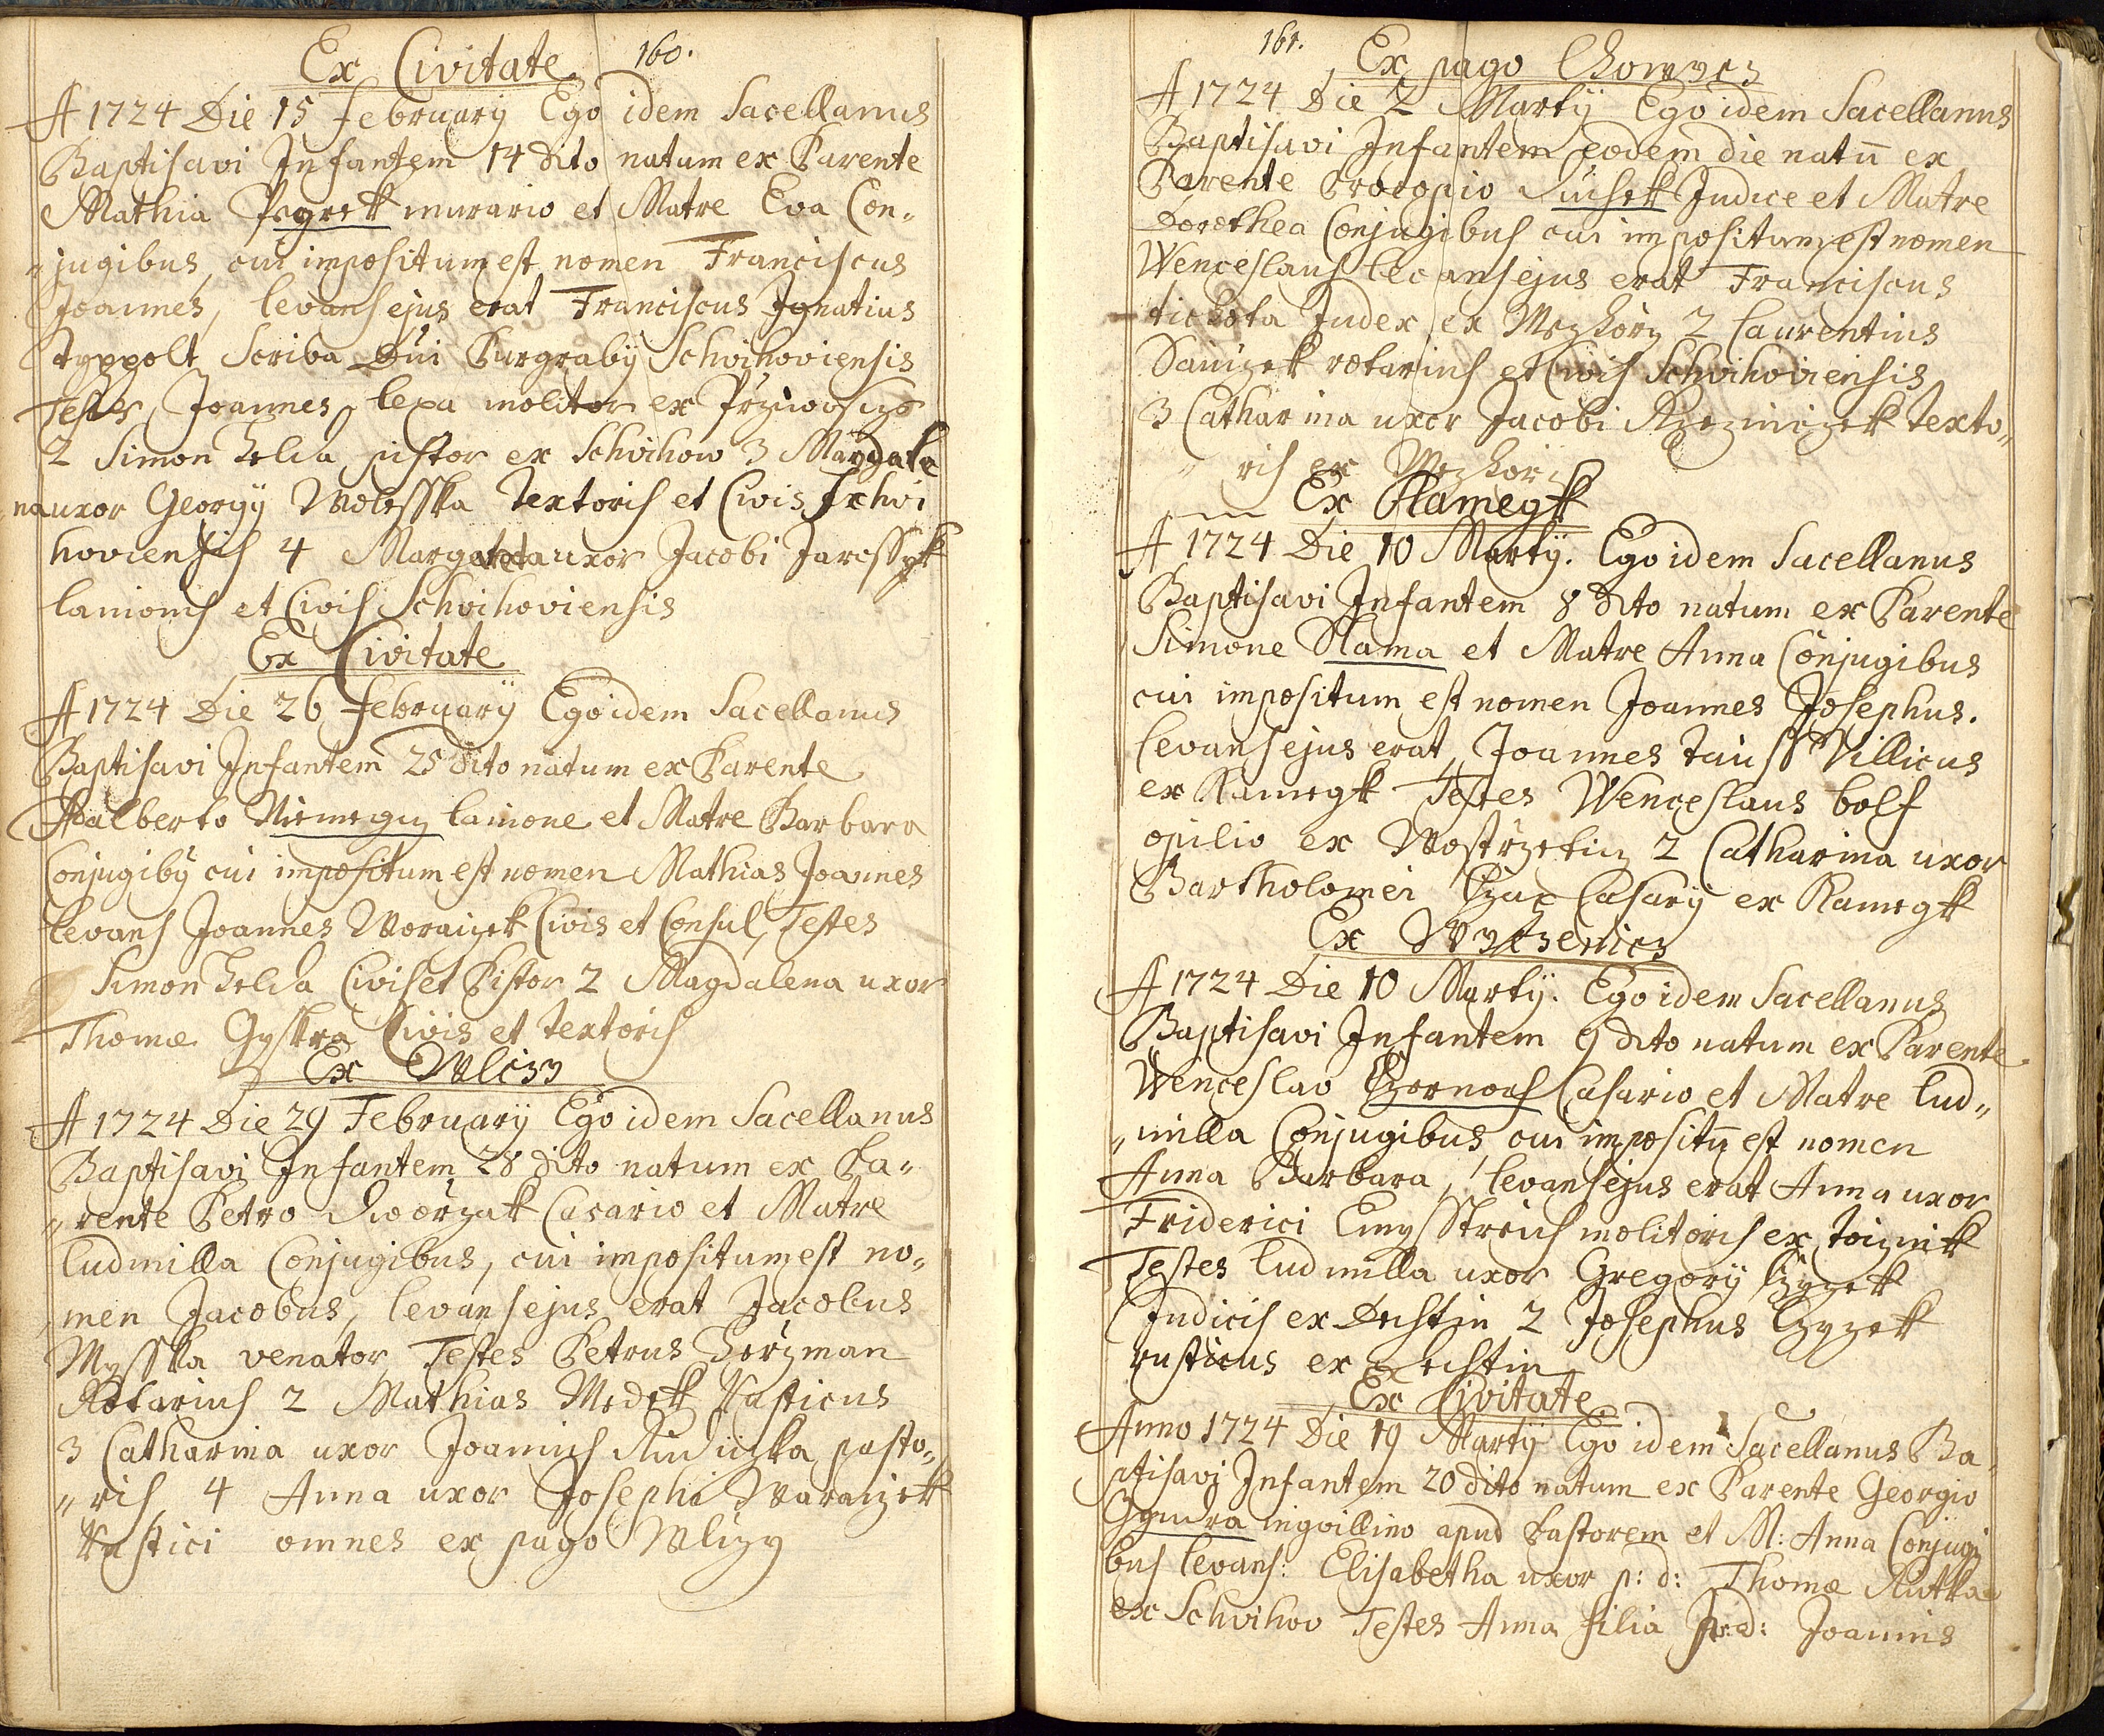 Ex Civitate 160.
A 1724 Die 15 February Ego idem Sacellanus
Baptisavi Infantem 14 dito natum ex Parente
Mathia murario et Matre Eva Con„
„jugibus, cui impositum est nomen Franciscus
Joannes, levans ejus erat Franciscus Ignatius
Typpolt Scriba Dni Purgraby Schvihoviensis
Testes, Joannes lepa molitor ex
2 Simon Zelda pistor ex Schvihow 3 Magdale
na uxor Georgy Wolesska Textoris et Civis Schvi
hoviensis 4 Margareta uxor Jacobi Jaressyk
lanionis et Civis Schvihoviensis
Ex Civitate
A 1724 Die 26 February Ego idem Sacellanus
Baptisavi Infantem 25 dito natum ex Parente
Adalberto lanione et Matre Barbara
Conjugiby cui impositum est nomen Mathias Joannes
levans Joannes Woraczek Civis et Consul, Testes
Simon Zelda Civis et Pistor 2 Magdalena uxor
Thomæ Gyskra Civis et textoris
Ex Wlczy
A 1724 Die 29 February Ego idem Sacellanus
Baptisavi Infantem 28 dito natum ex Pa„
„rente Petro Dworzak Casario et Matre
ludmilla Conjugibus, cui impositum est no„
„men Jacobus, levans ejus erat Jacobus
Mysska venator Testes Petrus Herzman
Rotarius 2 Mathias Medek Rusticus
3 Catharina uxor Joannis pasto„
„ris 4 Anna uxor Josephi Waraczek
Rustici omnes ex pago Wlczy
161. Ex pago
A 1724 Die 2 Marty Ego idem Sacellanus
Baptisavi Infantem eodem die natu ex
Parente Procopio Judice et Matre
Dorothea Conjugibus cui impositum est nomen
Wenceslaus levans ejus erat Franciscus
tichota Judex ex Mezhorz 2 laurentius
rotarius et Civis Schvihoviensis
3 Catharina uxor Jacobi texto„
„ris ex Mezhorz
Ex Kamegk
A 1724 Die 10 Marty. Ego idem Sacellanus
Baptisavi Infantem 8 dito natum ex Parente
Simone Slama et Matre Anna Conjugibus
cui impositum est nomen Joannes Josephus.
levans ejus erat, Joannes Villicus
ex Kamegk Testes Wenceslaus bolf
opilio ex 2 Catharina uxor
Bartholomei Czap Casary ex Kamegk
Ex
A 1724 Die 10 Marty. Ego idem Sacellanus
Baptisavi Infantem 9 dito natum ex Parente
Wenceslao Czernoch Casario et Matre lud„
„milla Conjugibus, cui impositu est nomen
Anna Barbara, levans ejus erat Anna uxor
Friderici molitoris ex
Testes ludmilla uxor Gregory Czyzek
Judicis ex Dechtin 2 Josephus Czyzek
rusticus ex Dechtin
Ex Civitate
Anno 1724 Die 19 Marty Ego idem Sacellanus Ba„
ptisavi Infantem 20 dito natum ex Parente Georgio
inqvillino apud Pastorem et M: Anna Conjugi
bus levans: Elisabetha uxor p: d: Thomæ
ex Schvihov Testes Anna filia p: d: Joannis